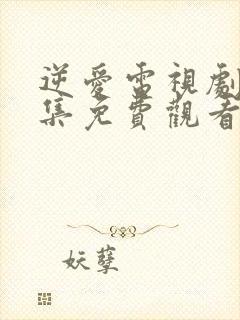 逆愛電視劇
集免費觀看
妖孽